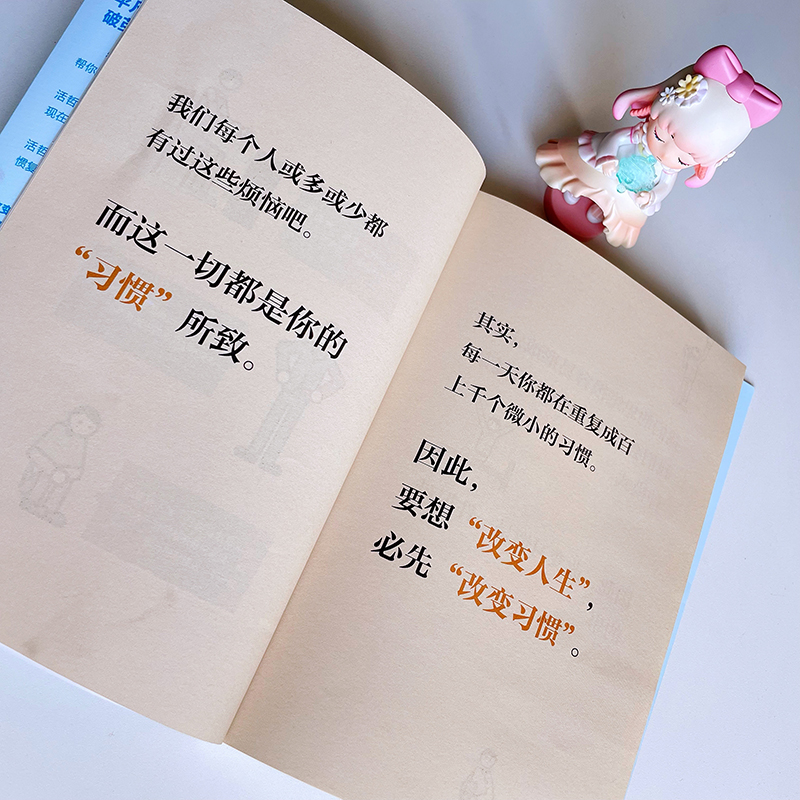 我们每个人或多或少都
有过这些烦恼吧。
而这一切都是你的
“习惯” 所致。
其实，
每一天你都在重复成百
上千个微小的习惯。
因此，
要想 “改变人生”，
必先 “改变习惯”。
帮你
活哲
现在
活哲
惯复